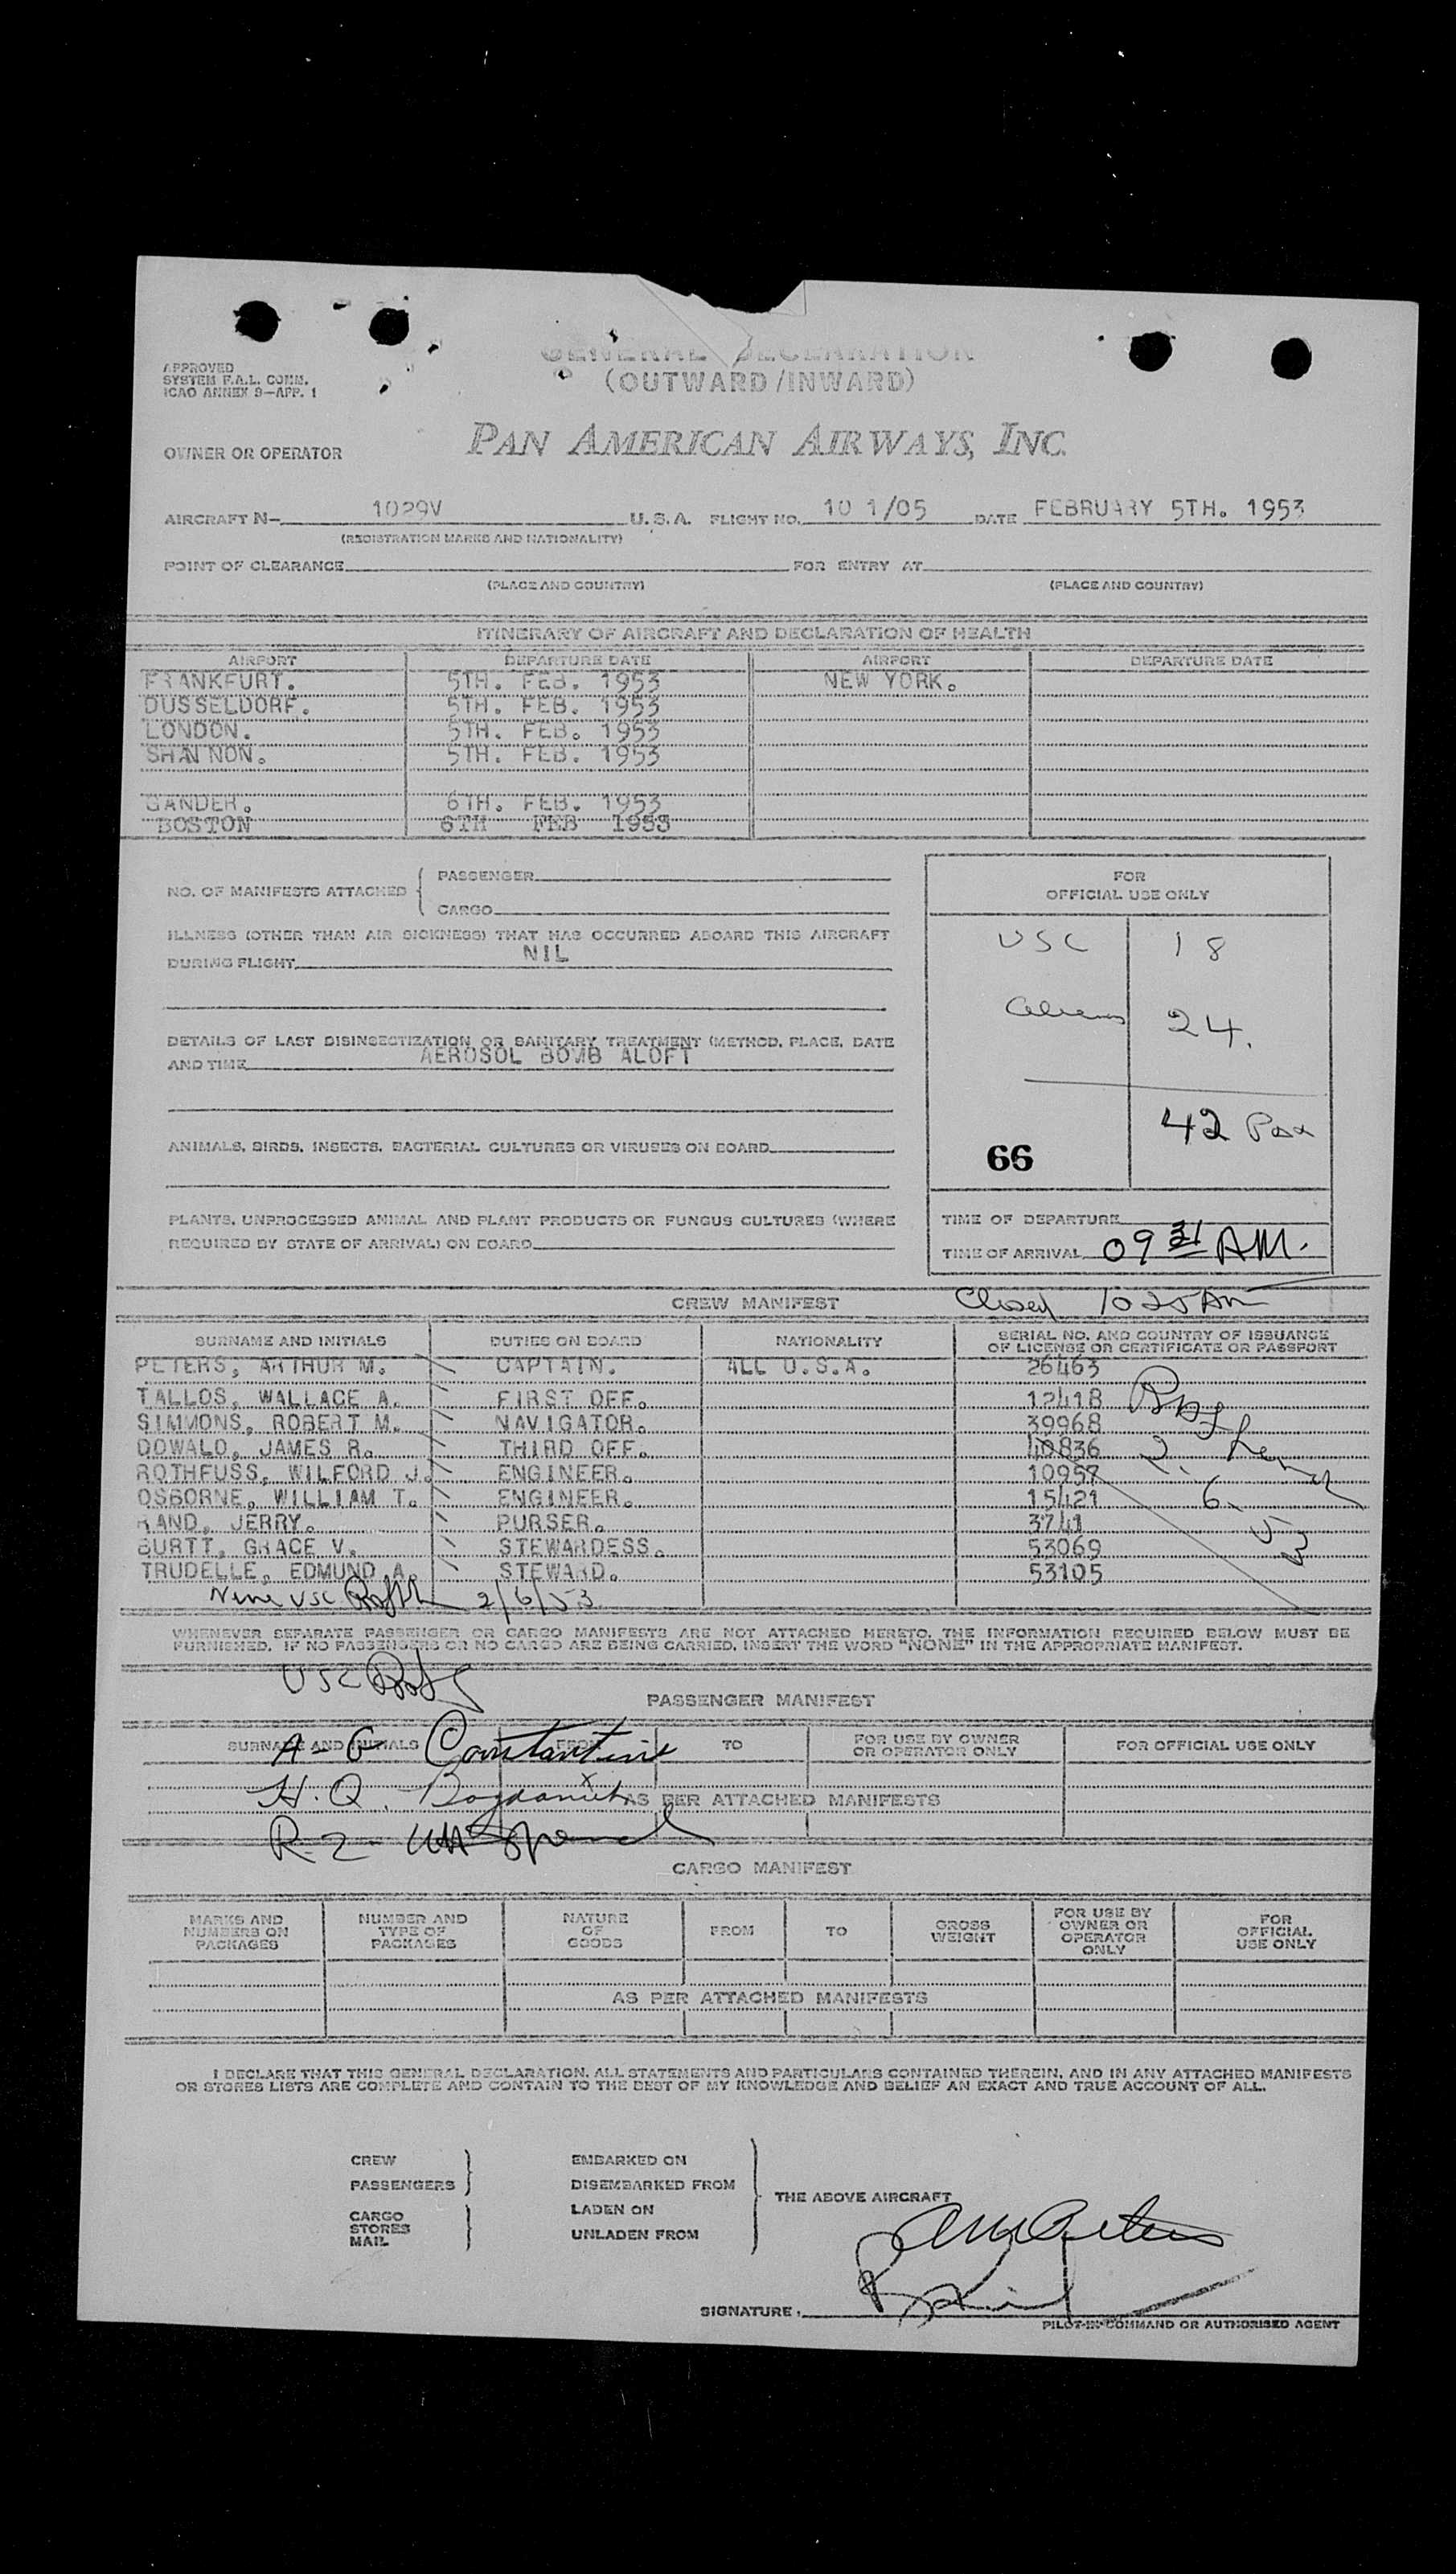 GENERAL DECLARATION
(OUTWARD/INWARD)
APPROVED
SYSTEM F.A.L. COMM.
ICAO ANNEX 9—APP. 1
OWNER OR OPERATOR PAN AMERICAN AIRWAYS, INC.
AIRCRAFT N- 1029V U.S.A. FLIGHT NO. 10 1/05 DATE FEBRUARY 5TH. 1953
(REGISTRATION MARKS AND NATIONALITY)
POINT OF CLEARANCE FOR ENTRY AT
(PLACE AND COUNTRY) (PLACE AND COUNTRY)
ITINERARY OF AIRCRAFT AND DECLARATION OF HEALTH
AIRPORT DEPARTURE DATE AIRPORT DEPARTURE DATE
FRANKFURT. 5TH. FEB. 1953 NEW YORK.
DUSSELDORF. 5TH. FEB. 1953
LONDON. 5TH. FEB. 1953
SHANNON. 5TH. FEB. 1953
GANDER. 6TH. FEB. 1953
BOSTON 6TH FEB 1953
NO. OF MANIFESTS ATTACHED { PASSENGER
CARGO
ILLNESS (OTHER THAN AIR SICKNESS) THAT HAS OCCURRED ABOARD THIS AIRCRAFT
DURING FLIGHT NIL
DETAILS OF LAST DISINSECTIZATION OR SANITARY TREATMENT (METHOD, PLACE, DATE
AND TIME AEROSOL BOMB ALOFT
ANIMALS, BIRDS, INSECTS, BACTERIAL CULTURES OR VIRUSES ON BOARD
PLANTS, UNPROCESSED ANIMAL AND PLANT PRODUCTS OR FUNGUS CULTURES (WHERE
REQUIRED BY STATE OF ARRIVAL) ON BOARD
FOR
OFFICIAL USE ONLY
USC 18
Aliens 24.
42 Pax
66
TIME OF DEPARTURE
TIME OF ARRIVAL 09 31 AM.
CREW MANIFEST Closed 10 25 AM
SURNAME AND INITIALS DUTIES ON BOARD NATIONALITY SERIAL NO. AND COUNTRY OF ISSUANCE
OF LICENSE OR CERTIFICATE OR PASSPORT
PETERS, ARTHUR M. CAPTAIN. ALL U.S.A. 26463
TALLOS, WALLACE A. FIRST OFF. 12418
SIMMONS, ROBERT M. NAVIGATOR. 39968
DOWALD, JAMES R. THIRD OFF. 40836
ROTHFUSS, WILFORD J. ENGINEER. 10957
OSBORNE, WILLIAM T. ENGINEER. 15421
RAND, JERRY. PURSER. 3741
BURTT, GRACE V. STEWARDESS. 53069
TRUDELLE, EDMUND A. STEWARD. 53105
2. 6. 53
Nine USC 2/6/53
WHENEVER SEPARATE PASSENGER OR CARGO MANIFESTS ARE NOT ATTACHED HERETO, THE INFORMATION REQUIRED BELOW MUST BE
FURNISHED. IF NO PASSENGERS OR NO CARGO ARE BEING CARRIED, INSERT THE WORD "NONE" IN THE APPROPRIATE MANIFEST.
USC
PASSENGER MANIFEST
SURNAME AND INITIALS FROM TO FOR USE BY OWNER
OR OPERATOR ONLY FOR OFFICIAL USE ONLY
A-G Constantine
H.Q.
AS PER ATTACHED MANIFESTS
R-Z
CARGO MANIFEST
MARKS AND
NUMBERS ON
PACKAGES
NUMBER AND
TYPE OF
PACKAGES
NATURE
OF
GOODS
FROM
TO
GROSS
WEIGHT
FOR USE BY
OWNER OR
OPERATOR
ONLY
FOR
OFFICIAL
USE ONLY
AS PER ATTACHED MANIFESTS
I DECLARE THAT THIS GENERAL DECLARATION, ALL STATEMENTS AND PARTICULARS CONTAINED THEREIN, AND IN ANY ATTACHED MANIFESTS
OR STORES LISTS ARE COMPLETE AND CONTAIN TO THE BEST OF MY KNOWLEDGE AND BELIEF AN EXACT AND TRUE ACCOUNT OF ALL.
CREW
PASSENGERS
CARGO
STORES
MAIL
EMBARKED ON
DISEMBARKED FROM
LADEN ON
UNLADEN FROM
THE ABOVE AIRCRAFT
AM Peters
SIGNATURE.
PILOT-IN-COMMAND OR AUTHORISED AGENT